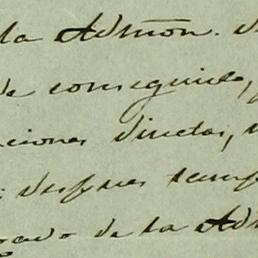 la Admon. d
de conseguirse,
ciones directas,
despues
gado de la Adm